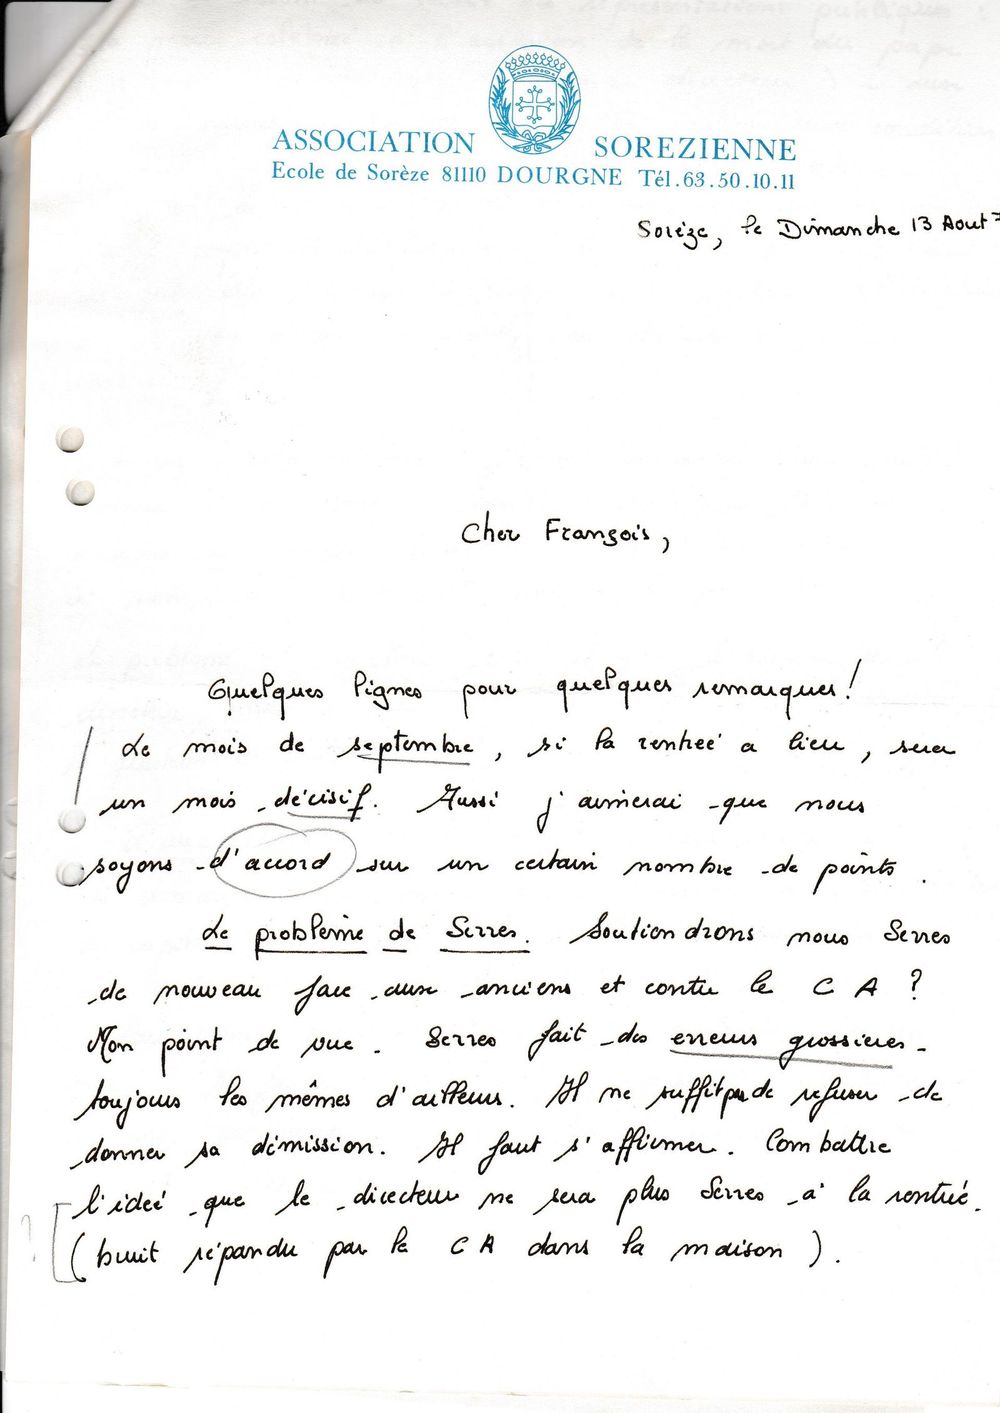 ASSOCIATION SOREZIENNE
Ecole de Sorèze 81110 DOURGNE Tél.63.50.10.11
Sorèze, le Dimanche 13 Aout
Cher François,
Quelques lignes pour quelques remarques!
Le mois de septembre, si la rentrée a lieu, sera
un mois décisif. Aussi j'aimerai que nous
soyons d'accord sur un certain nombre de points.
Le problème de Serres. Soutiendrons nous Serres
de nouveau face aux anciens et contre le C A ?
Mon point de vue. Serres fait des erreurs grossieres.
toujours les mêmes d'ailleurs. Il ne suffit pas de refuser de
donner sa démission. Il faut s'affirmer. Combattre
l'ideé que le directeur ne sera plus Serres à la rentrée.
(bruit répandu par le C A dans la maison).